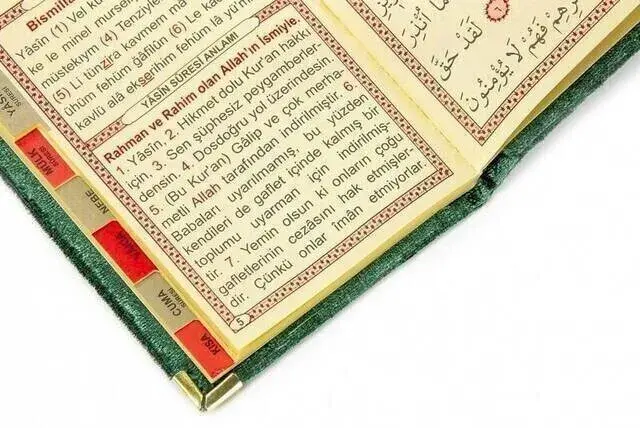 Bismille
Yâsîn (1) Vel ku
ke le minel mursel
müstekıym (4) Tenziyle
(5) Li tünzira kavmem mâ
ühüm fehüm ğâfilûn (6) Le ka
kavlü alâ ekserihim fehüm lâ yu'm
YASİN SÛRESİ ANLAMI
Rahman ve Rahim olan Allah'ın İsmiyle.
1. Yâsîn, 2. Hikmet dolu Kur'an hakkı
için, 3. Sen şüphesiz peygamberler-
densin. 4. Dosdoğru yol üzerindesin.
5. (Bu Kur'an) Gâlip ve çok merha-
metli Allah tarafından indirilmiştir. 6.
Babaları uyarılmamış, bu yüzden
kendileri de gaflet içinde kalmış bir
toplumu uyarman için indirilmiş-
tir. 7. Yemin olsun ki onların çoğu
gafletlerinin cezasını hak etmişler-
dir. Çünkü onlar îmân etmiyorlar.
5
YÂSÎN
SÛRESİ
MÜLK
SÛRESİ
NEBE
CUMA
SÛRESİ
KISA
لَقَدْ حَقَّ
فَهُمْ لَا يُؤْمِنُونَ